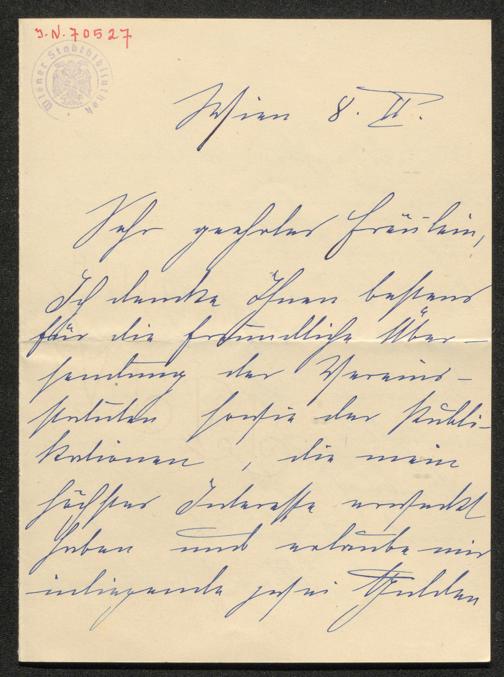 J.N. 70527
Wiener Stadtbibliothek
Wien 8. II.
Sehr geehrtes Fräulein,
Ich danke Ihnen bestens
für die freundliche Über-
sendung der Vereins-
statuten sowie der Publi-
kationen, die mein
höchstes Interesse erweckt
haben und erlaube mir
inliegende zwei Gulden